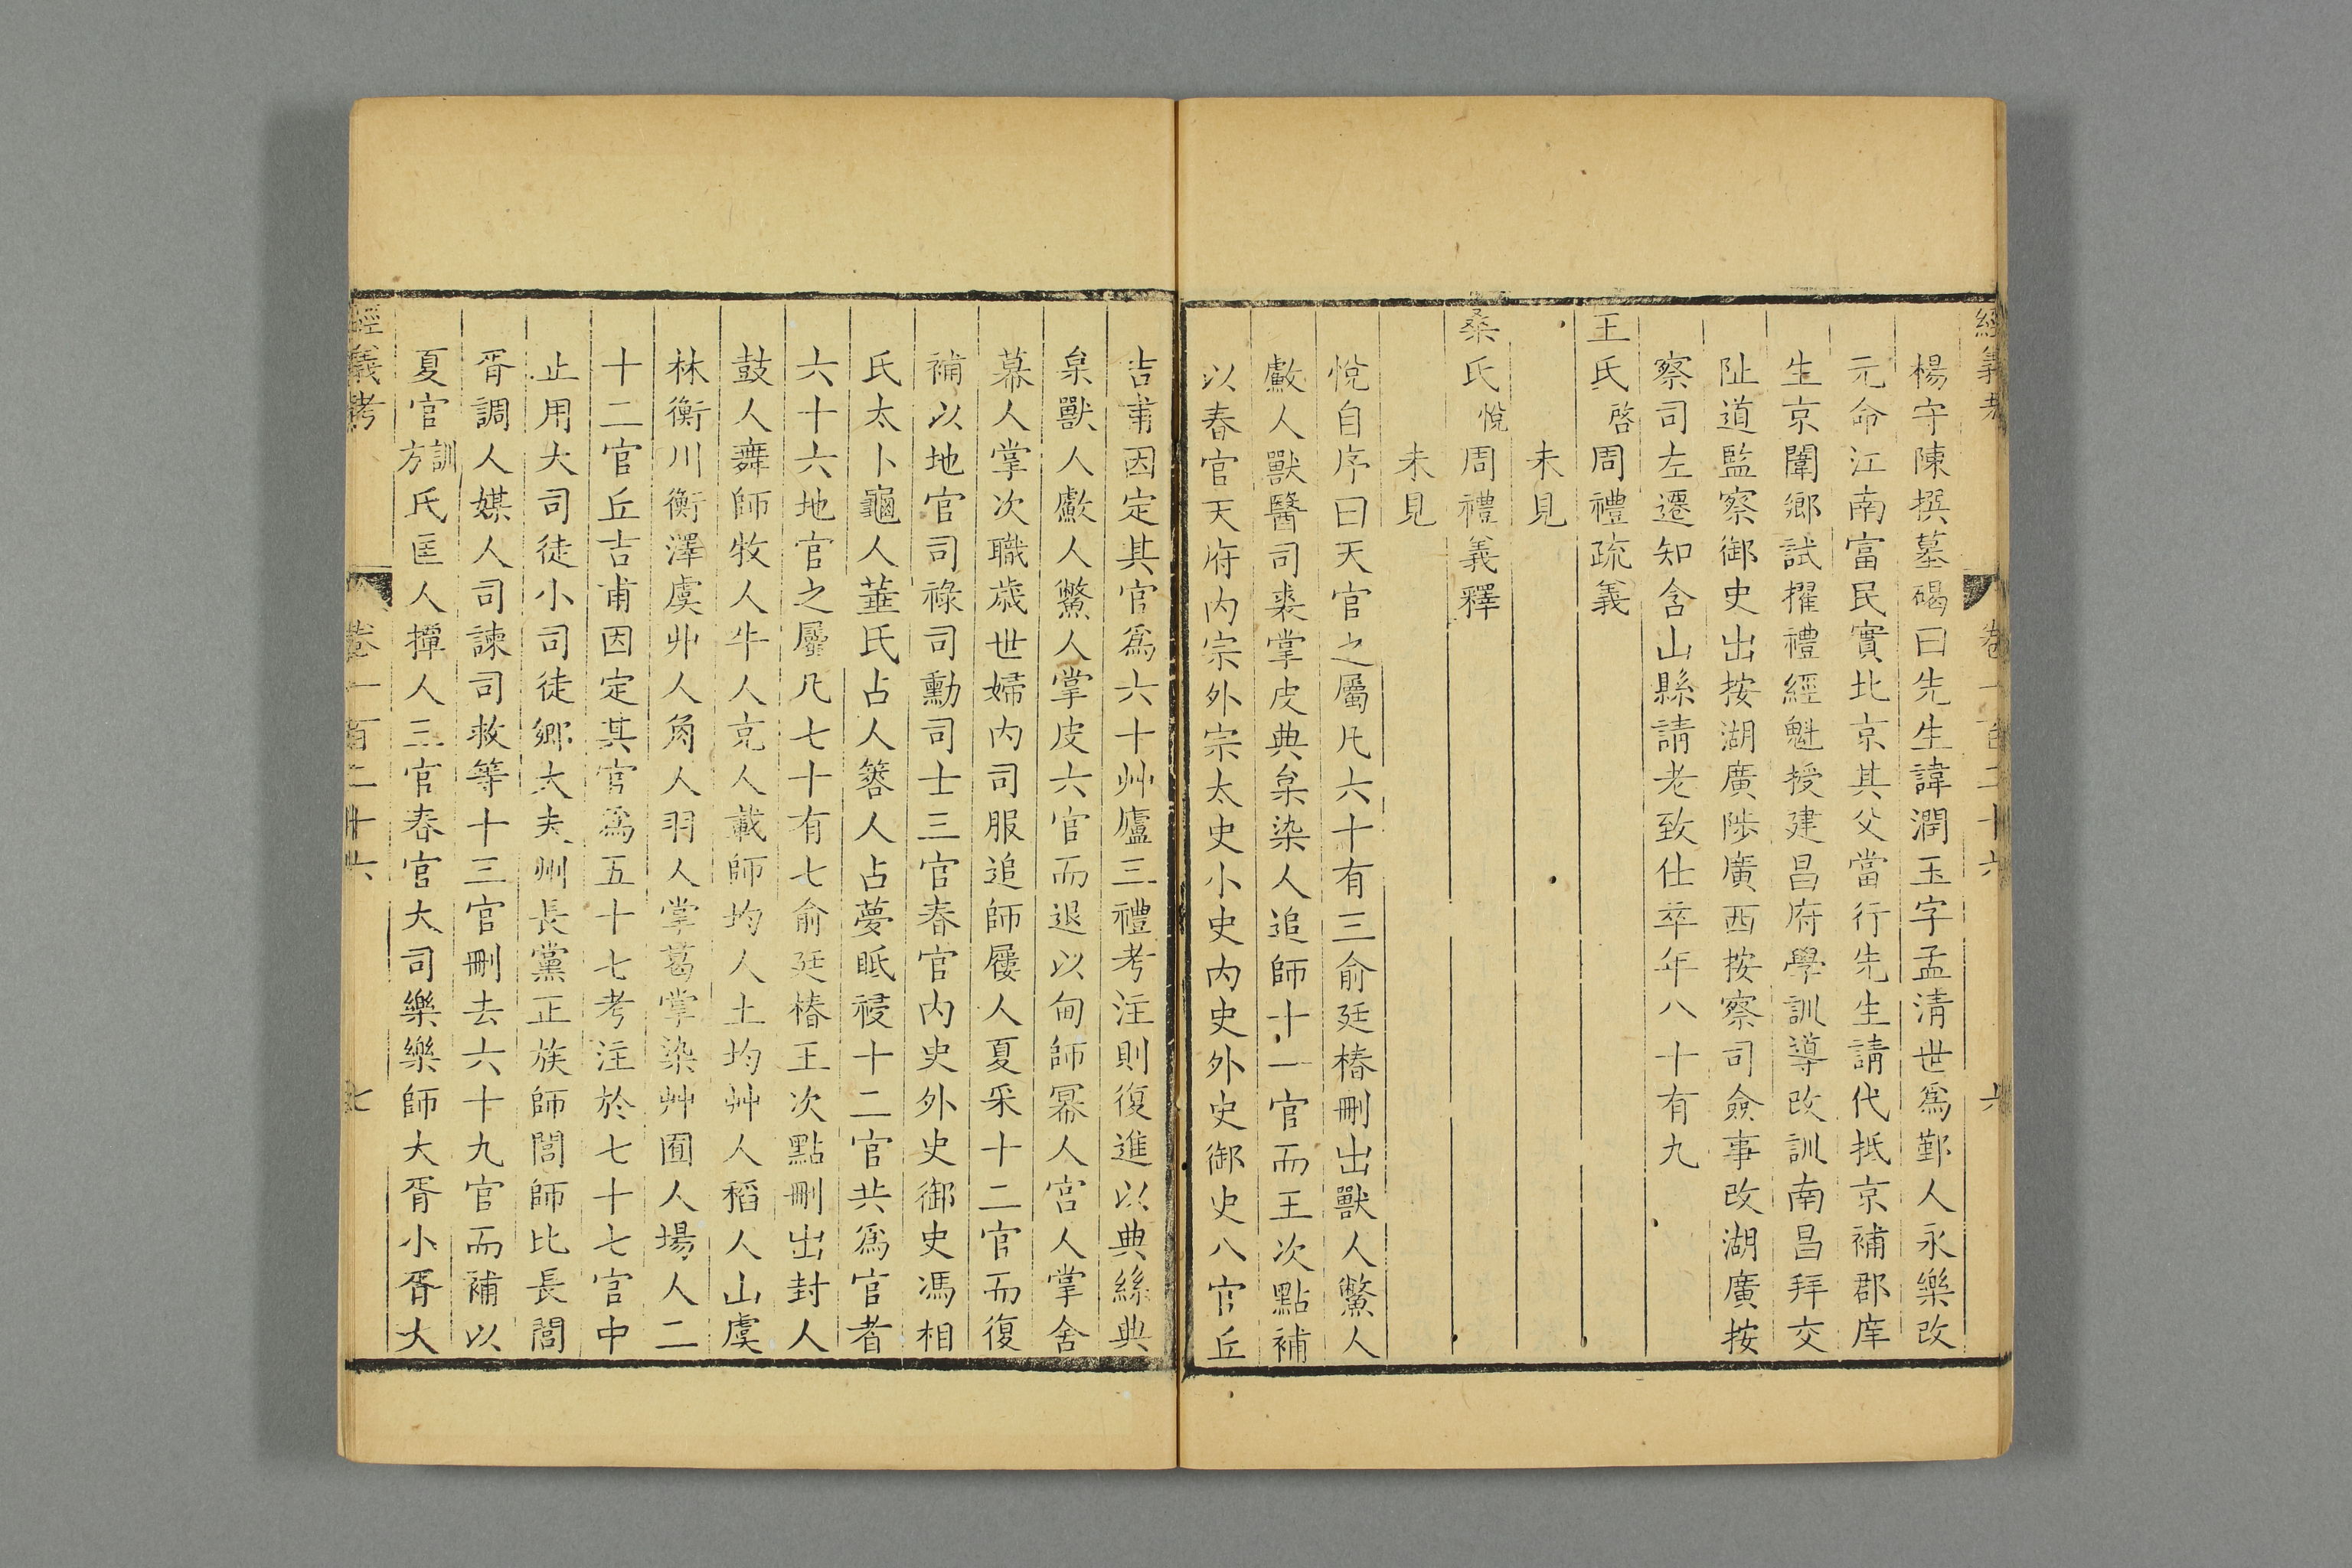 經義考 卷一百二十六 六
楊守陳撰墓碣曰先生諱潤玉字孟淸世爲鄞人永樂改
元命江南富民實北京其父當行先生請代抵京補郡庠
生京闈鄉試擢禮經魁授建昌府學訓導改訓南昌拜交
阯道監察御史出按湖廣陟廣西按察司僉事改湖廣按
察司左遷知含山縣請老致仕卒年八十有九
王氏啓周禮疏義
未見
桑氏悅周禮義釋
未見
悅自序曰天官之屬凡六十有三俞廷椿刪出獸人鱉人
䱷人獸醫司裘掌皮典枲染人追師十一官而王次點補
以春官天府內宗外宗太史小史內史外史御史八官丘
吉甫因定其官爲六十艸廬三禮考注則復進以典絲典
枲獸人䱷人鱉人掌皮六官而退以甸師冪人宮人掌舍
幕人掌次職歲世婦內司服追師屨人夏采十二官而復
補以地官司祿司勳司士三官春官內史外史御史馮相
氏太卜龜人菙氏占人簭人占夢眂祲十二官共爲官者
六十六地官之屬凡七十有七俞廷椿王次點刪出封人
鼓人舞師牧人牛人充人載師均人土均艸人稻人山虞
林衡川衡澤虞丱人角人羽人掌葛掌染艸囿人場人二
十二官丘吉甫因定其官爲五十七考注於七十七官中
止用大司徒小司徒鄉大夫州長黨正族師閭師比長閭
胥調人媒人司諫司救等十三官刪去六十九官而補以
夏官訓方氏匡人撢人三官春官大司樂樂師大胥小胥大
經義考 卷一百二十六 七